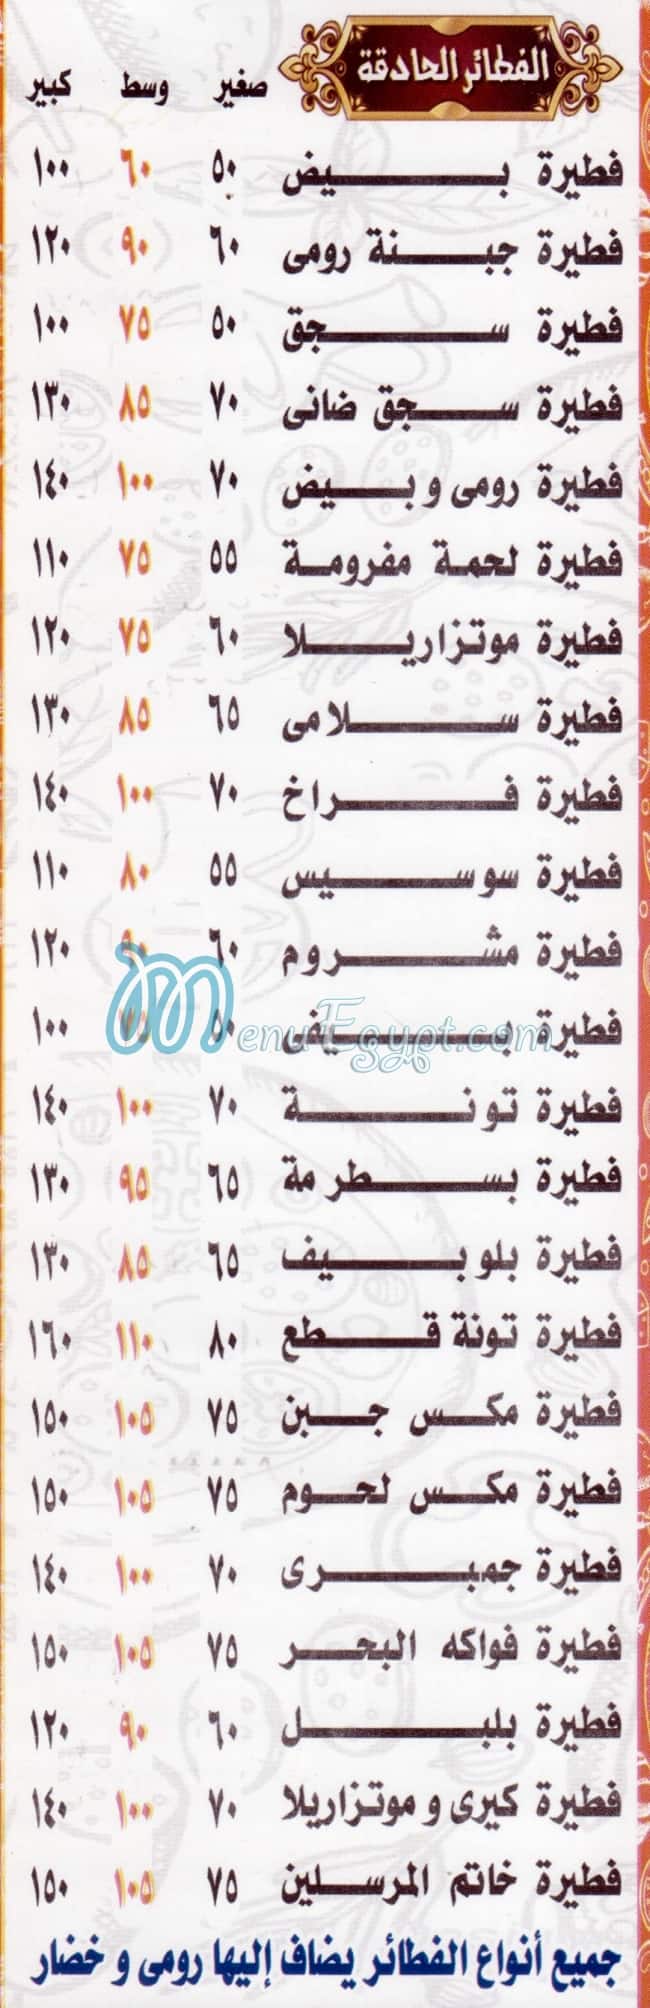 الفطائر الحادقة صغير وسط كبير
فطيرة بيض ٥٠ ٦٠ ١٠٠
فطيرة جبنة رومى ٦٠ ٩٠ ١٢٠
فطيرة سجق ٥٠ ٧٥ ١٠٠
فطيرة سجق ضانى ٧٠ ٨٥ ١٣٠
فطيرة رومى و بيض ٧٠ ١٠٠ ١٤٠
فطيرة لحمة مفرومة ٥٥ ٧٥ ١١٠
فطيرة موتزاريلا ٦٠ ٧٥ ١٢٠
فطيرة سلامى ٦٥ ٨٥ ١٣٠
فطيرة فراخ ٧٠ ١٠٠ ١٤٠
فطيرة سوسيس ٥٥ ٨٠ ١١٠
فطيرة مشروم ٦٠ ٩٠ ١٢٠
فطيرة بيف ٥٠ ٧٥ ١٠٠
MenuEgypt.com
فطيرة تونة ٧٠ ١٠٠ ١٤٠
فطيرة بسطرمة ٦٥ ٩٥ ١٣٠
فطيرة بلوبيف ٦٥ ٨٥ ١٣٠
فطيرة تونة قطع ٨٠ ١١٠ ١٦٠
فطيرة مكس جبن ٧٥ ١٠٥ ١٥٠
فطيرة مكس لحوم ٧٥ ١٠٥ ١٥٠
فطيرة جمبرى ٧٠ ١٠٠ ١٤٠
فطيرة فواكه البحر ٧٥ ١٠٥ ١٥٠
فطيرة بلبل ٦٠ ٩٠ ١٢٠
فطيرة كيرى و موتزاريلا ٧٠ ١٠٠ ١٤٠
فطيرة خاتم المرسلين ٧٥ ١٠٥ ١٥٠
جميع أنواع الفطائر يضاف إليها رومى و خضار